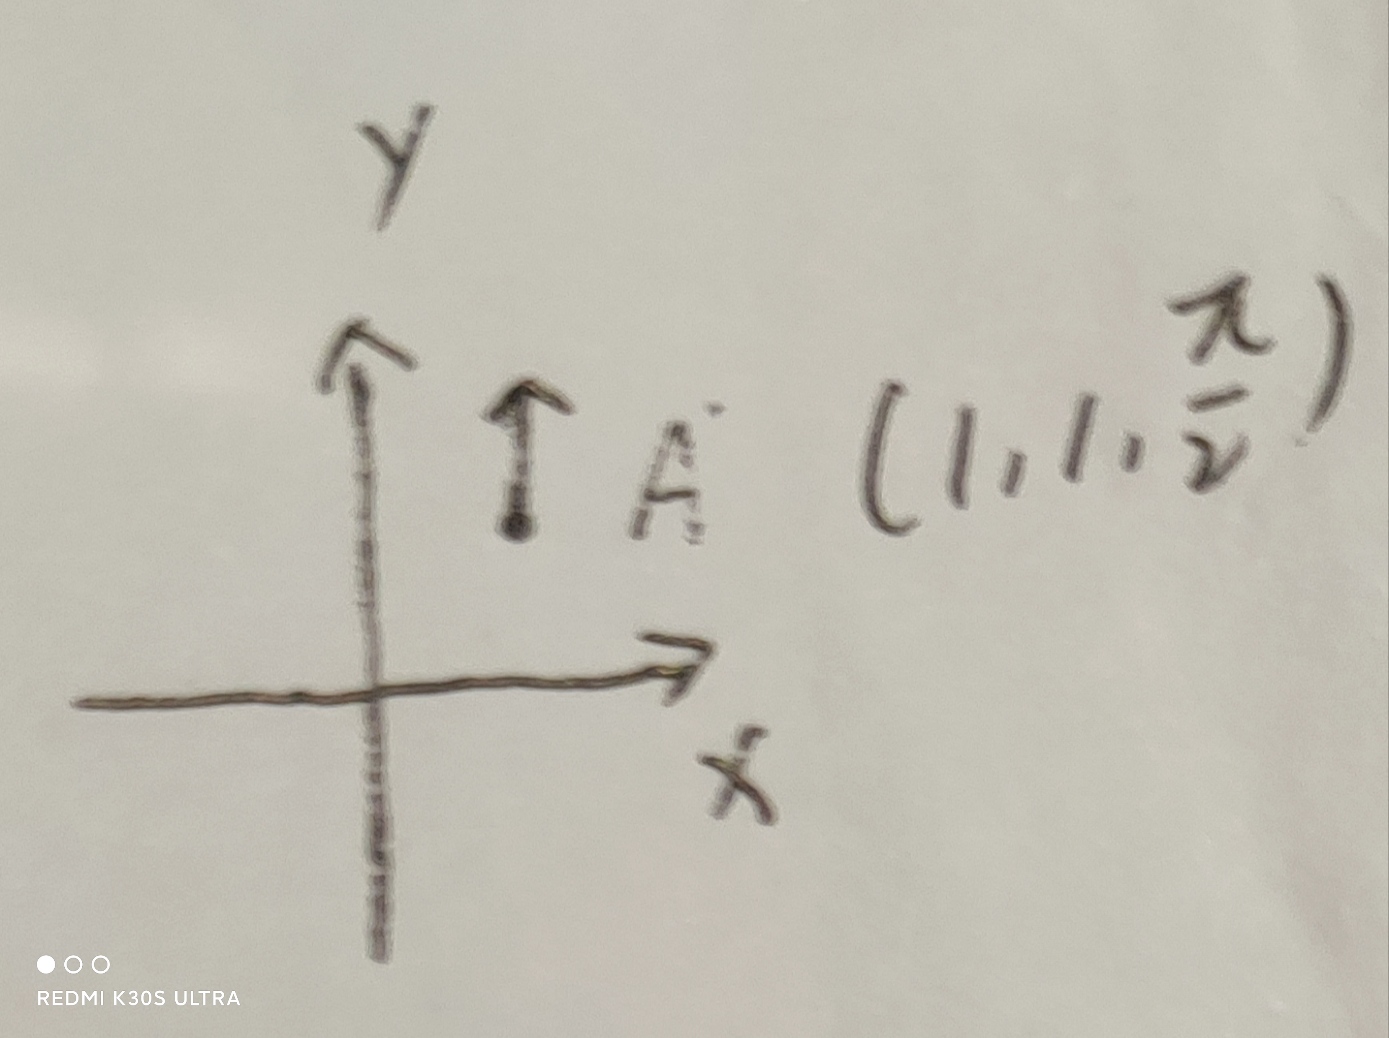 Y
A (1, 1, π/2)
X
REDMI K30S ULTRA